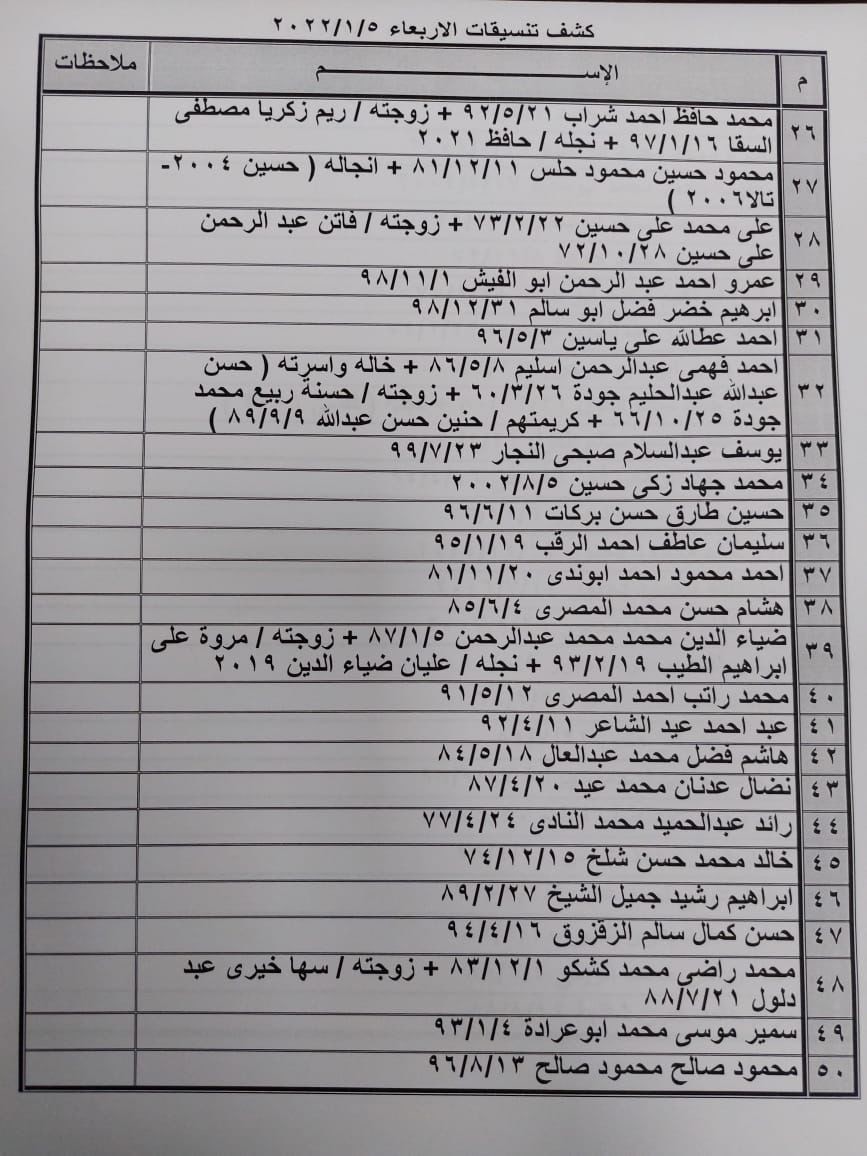 كشف تنسيقات الاربعاء ٢٠٢٢/١/٥
م الإســــــــم ملاحظات
٢٦ محمد حافظ احمد شراب ٩٢/٥/٢١ + زوجته / ريم زكريا مصطفى
السقا ٩٧/١/١٦ + نجله / حافظ ٢٠٢١
٢٧ محمود حسين محمود حلس ٨١/١٢/١١ + انجاله ( حسين ٢٠٠٤-
تالا٢٠٠٦ )
٢٨ على محمد على حسين ٧٣/٢/٢٢ + زوجته / فاتن عبد الرحمن
على حسين ٧٢/١٠/٢٨
٢٩ عمرو احمد عبد الرحمن ابو الفيش ٩٨/١١/١
٣٠ ابرهيم خضر فضل ابو سالم ٩٨/١٢/٣١
٣١ احمد عطالله على ياسين ٩٦/٥/٣
٣٢ احمد فهمى عبدالرحمن اسليم ٨٦/٥/٨ + خاله واسرته ( حسن
عبدالله عبدالحليم جودة ٦٠/٣/٢٦ + زوجته / حسنة ربيع محمد
جودة ٦٦/١٠/٢٥ + كريمتهم / حنين حسن عبدالله ٨٩/٩/٩ )
٣٣ يوسف عبدالسلام صبحى النجار ٩٩/٧/٢٣
٣٤ محمد جهاد زكى حسين ٢٠٠٢/٨/٥
٣٥ حسين طارق حسن بركات ٩٦/٦/١١
٣٦ سليمان عاطف احمد الرقب ٩٥/١/١٩
٣٧ احمد محمود احمد ابوندى ٨١/١١/٢٠
٣٨ هشام حسن محمد المصرى ٨٥/٦/٤
٣٩ ضياء الدين محمد محمد عبدالرحمن ٨٧/١/٥ + زوجته / مروة على
ابراهيم الطيب ٩٣/٢/١٩ + نجله / عليان ضياء الدين ٢٠١٩
٤٠ محمد راتب احمد المصرى ٩١/٥/١٢
٤١ عبد احمد عيد الشاعر ٩٢/٤/١١
٤٢ هاشم فضل محمد عبدالعال ٨٤/٥/١٨
٤٣ نضال عدنان محمد عيد ٨٧/٤/٢٠
٤٤ رائد عبدالحميد محمد النادى ٧٧/٤/٢٤
٤٥ خالد محمد حسن شلخ ٧٤/١٢/١٥
٤٦ ابراهيم رشيد جميل الشيخ ٨٩/٢/٢٧
٤٧ حسن كمال سالم الزقزوق ٩٤/٤/١٦
٤٨ محمد راضى محمد كشكو ٨٣/١٢/١ + زوجته / سها خيرى عبد
دلول ٨٨/٧/٢١
٤٩ سمير موسى محمد ابوعرادة ٩٣/١/٤
٥٠ محمود صالح محمود صالح ٩٦/٨/١٣